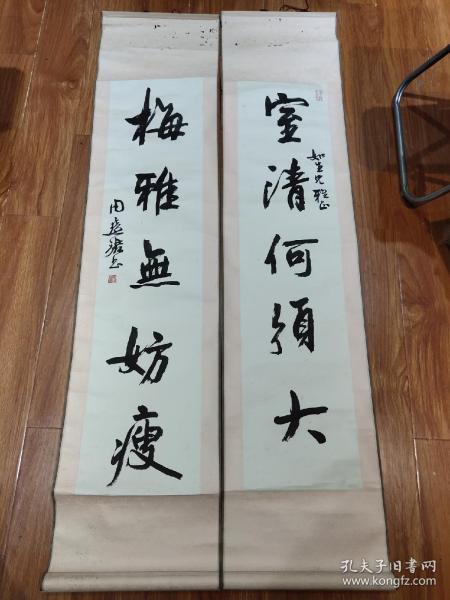 室清何须大
如生兄雅正
梅雅無妨瘦
孔夫子旧书网
www.kongfz.com